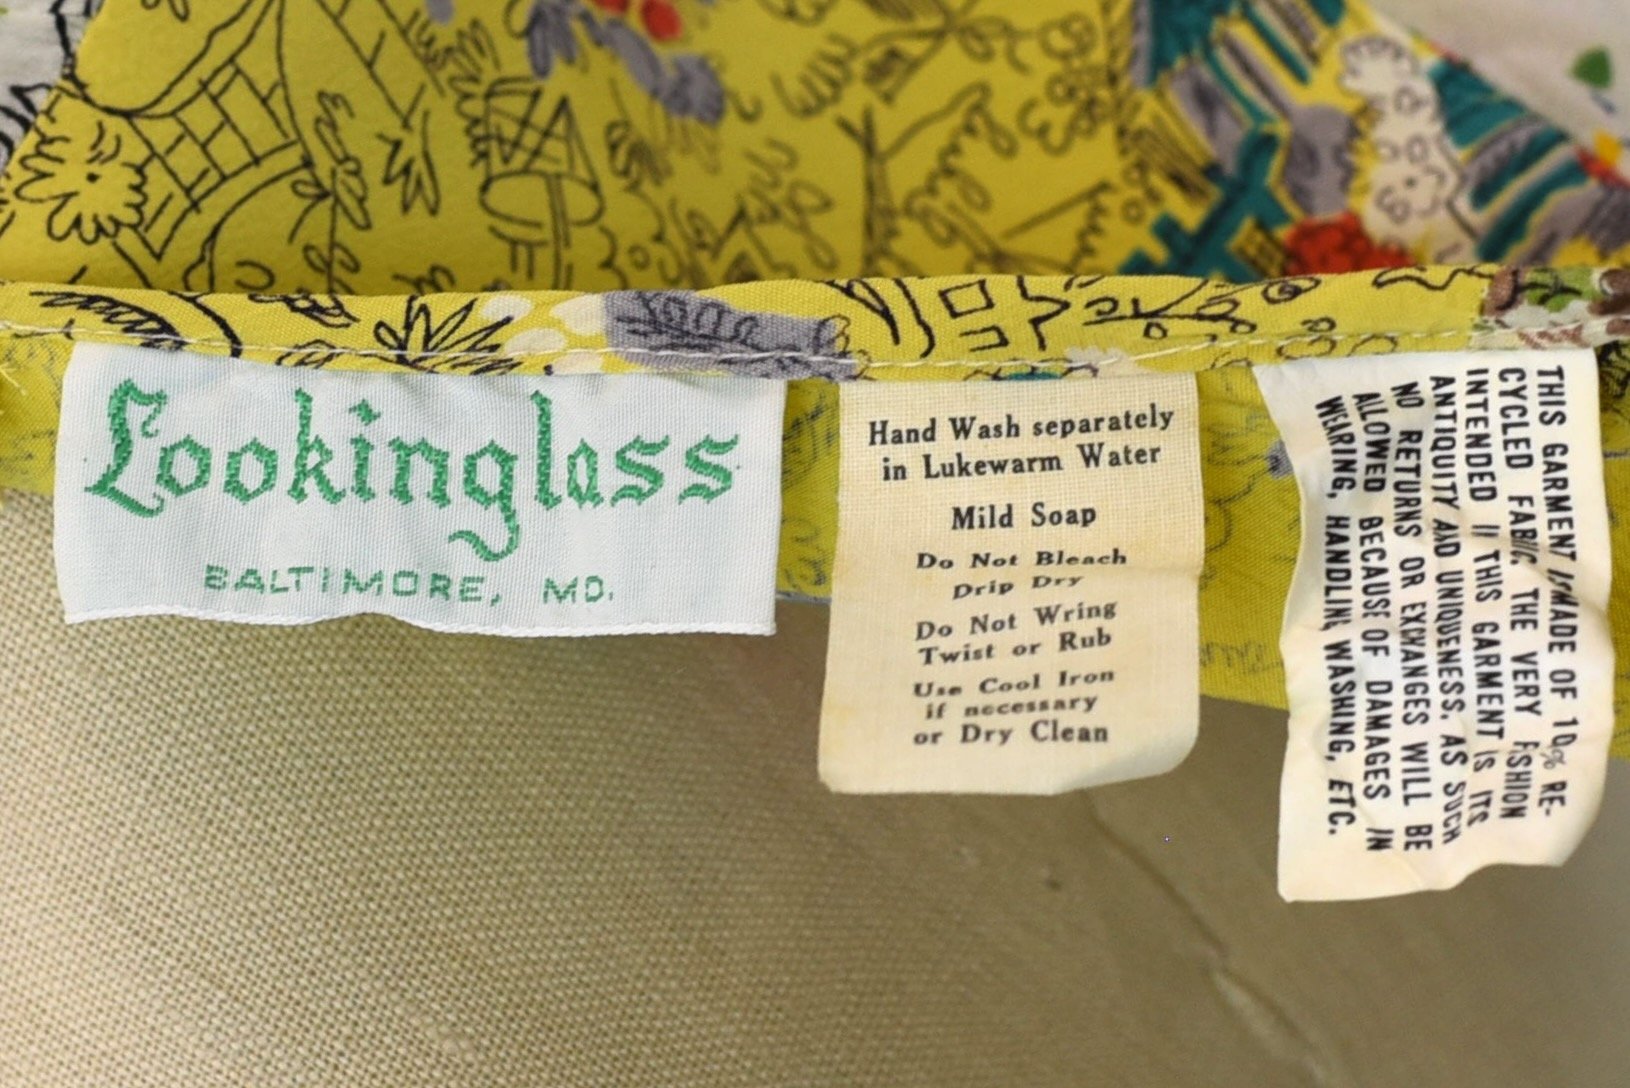 Lookinglass
BALTIMORE, MD.
Hand Wash separately
in Lukewarm Water
Mild Soap
Do Not Bleach
Drip Dry
Do Not Wring
Twist or Rub
Use Cool Iron
if necessary
or Dry Clean
THIS GARMENT IS MADE OF 10% RE-
CYCLED FABIC. THE VERY FASHION
INTENDED IN THIS GARMENT IS ITS
ANTIQUITY AND UNIQUENESS. AS SUCH
NO RETURNS OR EXCHANGES WILL BE
ALLOWED BECAUSE OF DAMAGES IN
WEARING, HANDLING, WASHING, ETC.